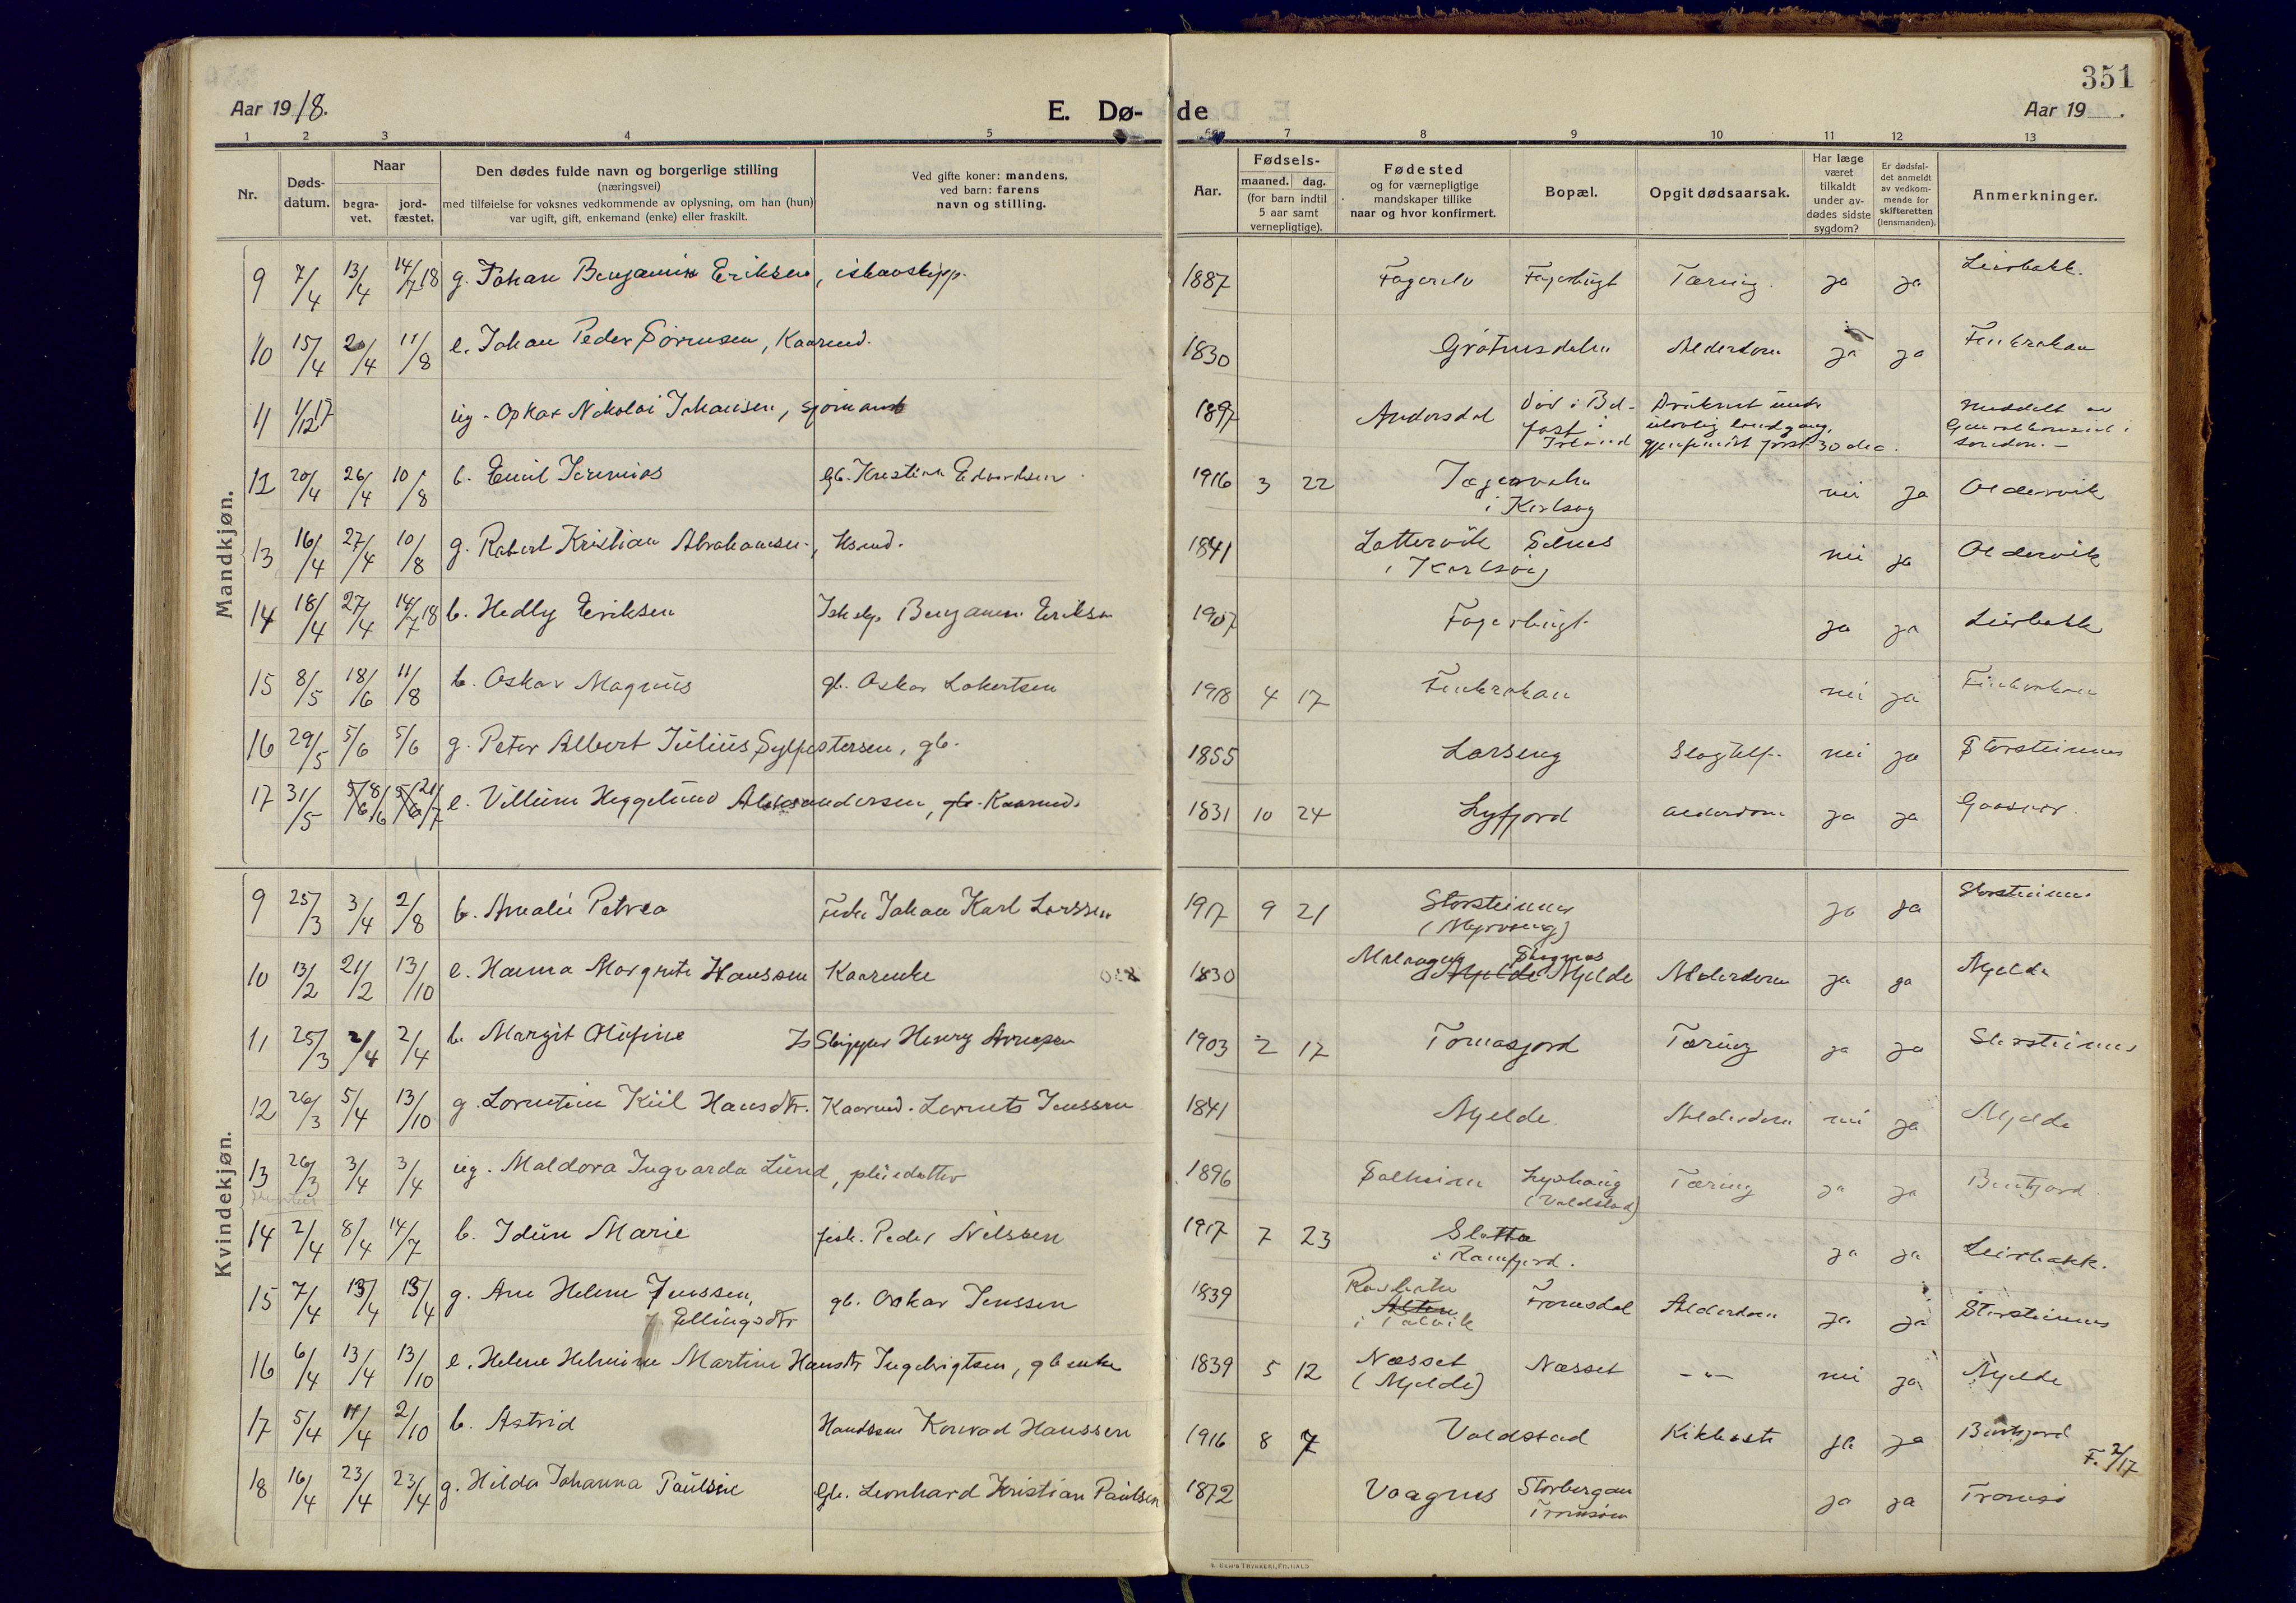 351
Aar 1918.
E. Dø-
de
Aar 19 .
1 2 3 4 5 7 8 9 10 11 12 13
Nr.
Døds-
datum.
Naar
begra-
vet.
jord-
fæstet.
Den dødes fulde navn og borgerlige stilling
(næringsvei)
med tilføielse for voksnes vedkommende av oplysning, om han (hun)
var ugift, gift, enkemand (enke) eller fraskilt.
Ved gifte koner: mandens,
ved barn: farens
navn og stilling.
Aar.
Fødsels-
maaned. dag.
(for barn indtil
5 aar samt
vernepligtige).
Fødested
og for værnepligtige
mandskaper tillike
naar og hvor konfirmert.
Bopæl.
Opgit dødsaarsak.
Har læge
været
tilkaldt
under av-
dødes sidste
sygdom?
Er dødsfal-
det anmeldt
av vedkom-
mende for
skifteretten
(lensmanden).
Anmerkninger.
Mandkjøn.
9 7/4 13/4 14/7 18 g. Johan Benjamin Eriksen, ishavsskipp. 1887 Fagerelv Fagerbugt Tæring. ja ja Leirbakk.
10 15/4 20/4 11/8 e. Johan Peder Sørensen, Kaarmd. 1830 Grøtnesdalen Alderdom ja ja Finkroken
11 1/12 17 ug. Oskar Nikolai Johansen, sjømand 1897 Andersdal Død i Bel-
fast i
Irland Druknet under
ulovlig landgang,
gjenfundet først 30 dec. Meddelt av
Generalkonsulat i
London.-
12 20/4 26/4 10/8 b. Emil Jeremias gb. Kristian Edvardsen 1916 3 22 Jægervatn
i Karlsøy nei ja Oldervik
13 16/4 27/4 10/8 g. Robert Kristian Abrahamsen, Hsmd. 1841 Lattervik
i Karlsøy nei ja Oldervik
14 18/4 27/4 14/7 18 b. Hedly Eriksen Ishskp. Benjamin Eriksen 1907 Fagerbugt ja ja Leirbakk
15 8/5 18/6 11/8 b. Oskar Magnus gb. Oskar Lakertsen 1918 4 17 Finkroken nei ja Finkroken
16 29/5 5/6 5/6 g. Peter Albert Julius Sylfestersen, gb. 1855 Larseng Slagtilf. nei ja Storsteinnes
17 31/5 5/6 8/6 5/6 21/7 e. Villum Heggelund Aleksandersen, gb. Kaarmd. 1831 10 24 Lyfjord alderdom ja ja Gaasvær.
Kvindekjøn.
9 25/3 3/4 2/8 b. Amalie Petrea Johan Karl Larssen 1917 9 21 Storsteinnes
ja ja Storsteinnes
10 13/2 21/2 13/10 e. Hanna Margrete Hanssen Kaarenke 1830 Malangen
Mjelde Mjelde Alderdom ja ja Mjelde
11 25/3 2/4 2/4 b. Margit Olufine Is Skipper Henry Arnesen 1903 2 17 Tomasjord Tæring ja ja Storsteinnes
12 26/3 5/4 13/10 g. Lorentine Kiil Hansdtr. Kaarmd. Lorents Jenssen 1841 Mjelde Alderdom nei ja Mjelde
13 26/3 3/4 3/4 ug. Maldora Ingvarda Lund, pleiedatter 1896 Solheim Lyshaug
(Valdstad) Tæring ja ja Buktfjord
14 2/4 8/4 14/7 b. Idun Marie fisk. Peder Nilssen 1917 7 23 Sletta
i Ramfjord. ja ja Leirbakk.
15 7/4 13/4 13/4 g. Ane Helene Jenssen,
f. Ellingsdtr gb. Oskar Jenssen 1839
Alten
i Talvik Tromsdal Alderdom ja ja Storsteinnes
16 6/4 13/4 13/10 e. Helene Helmine Martine Hansdtr Ingebrigtsen, gbenke 1839 5 12 Næsset
(Mjelde) Næsset -"- nei ja Mjelde
17 5/4 11/4 2/10 b. Astrid Handsm Konrad Hanssen 1916 8 7 Valdstad Kikhoste ja ja F. 2/17
18 16/4 23/4 23/4 g. Hilda Johanna Paulsen Gb. Leonhard Kristian Paulsen 1872 Vaagnes Storbergan
Tromsøen ja ja Tromsø